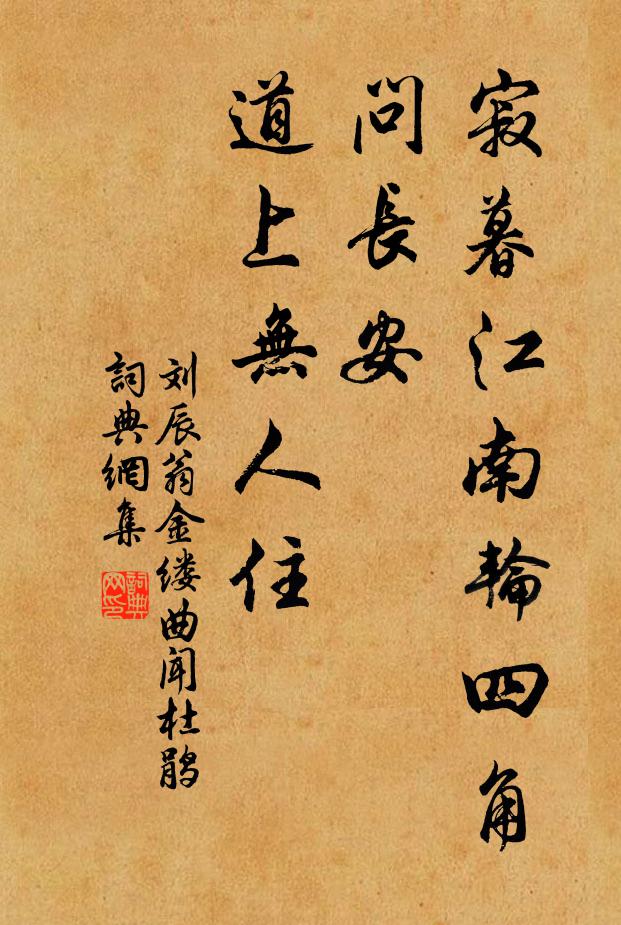 寂暮江南輪四角
問長安
道上無人住
刘辰翁金缕曲闻杜鹃
詞典網集
詞典网印